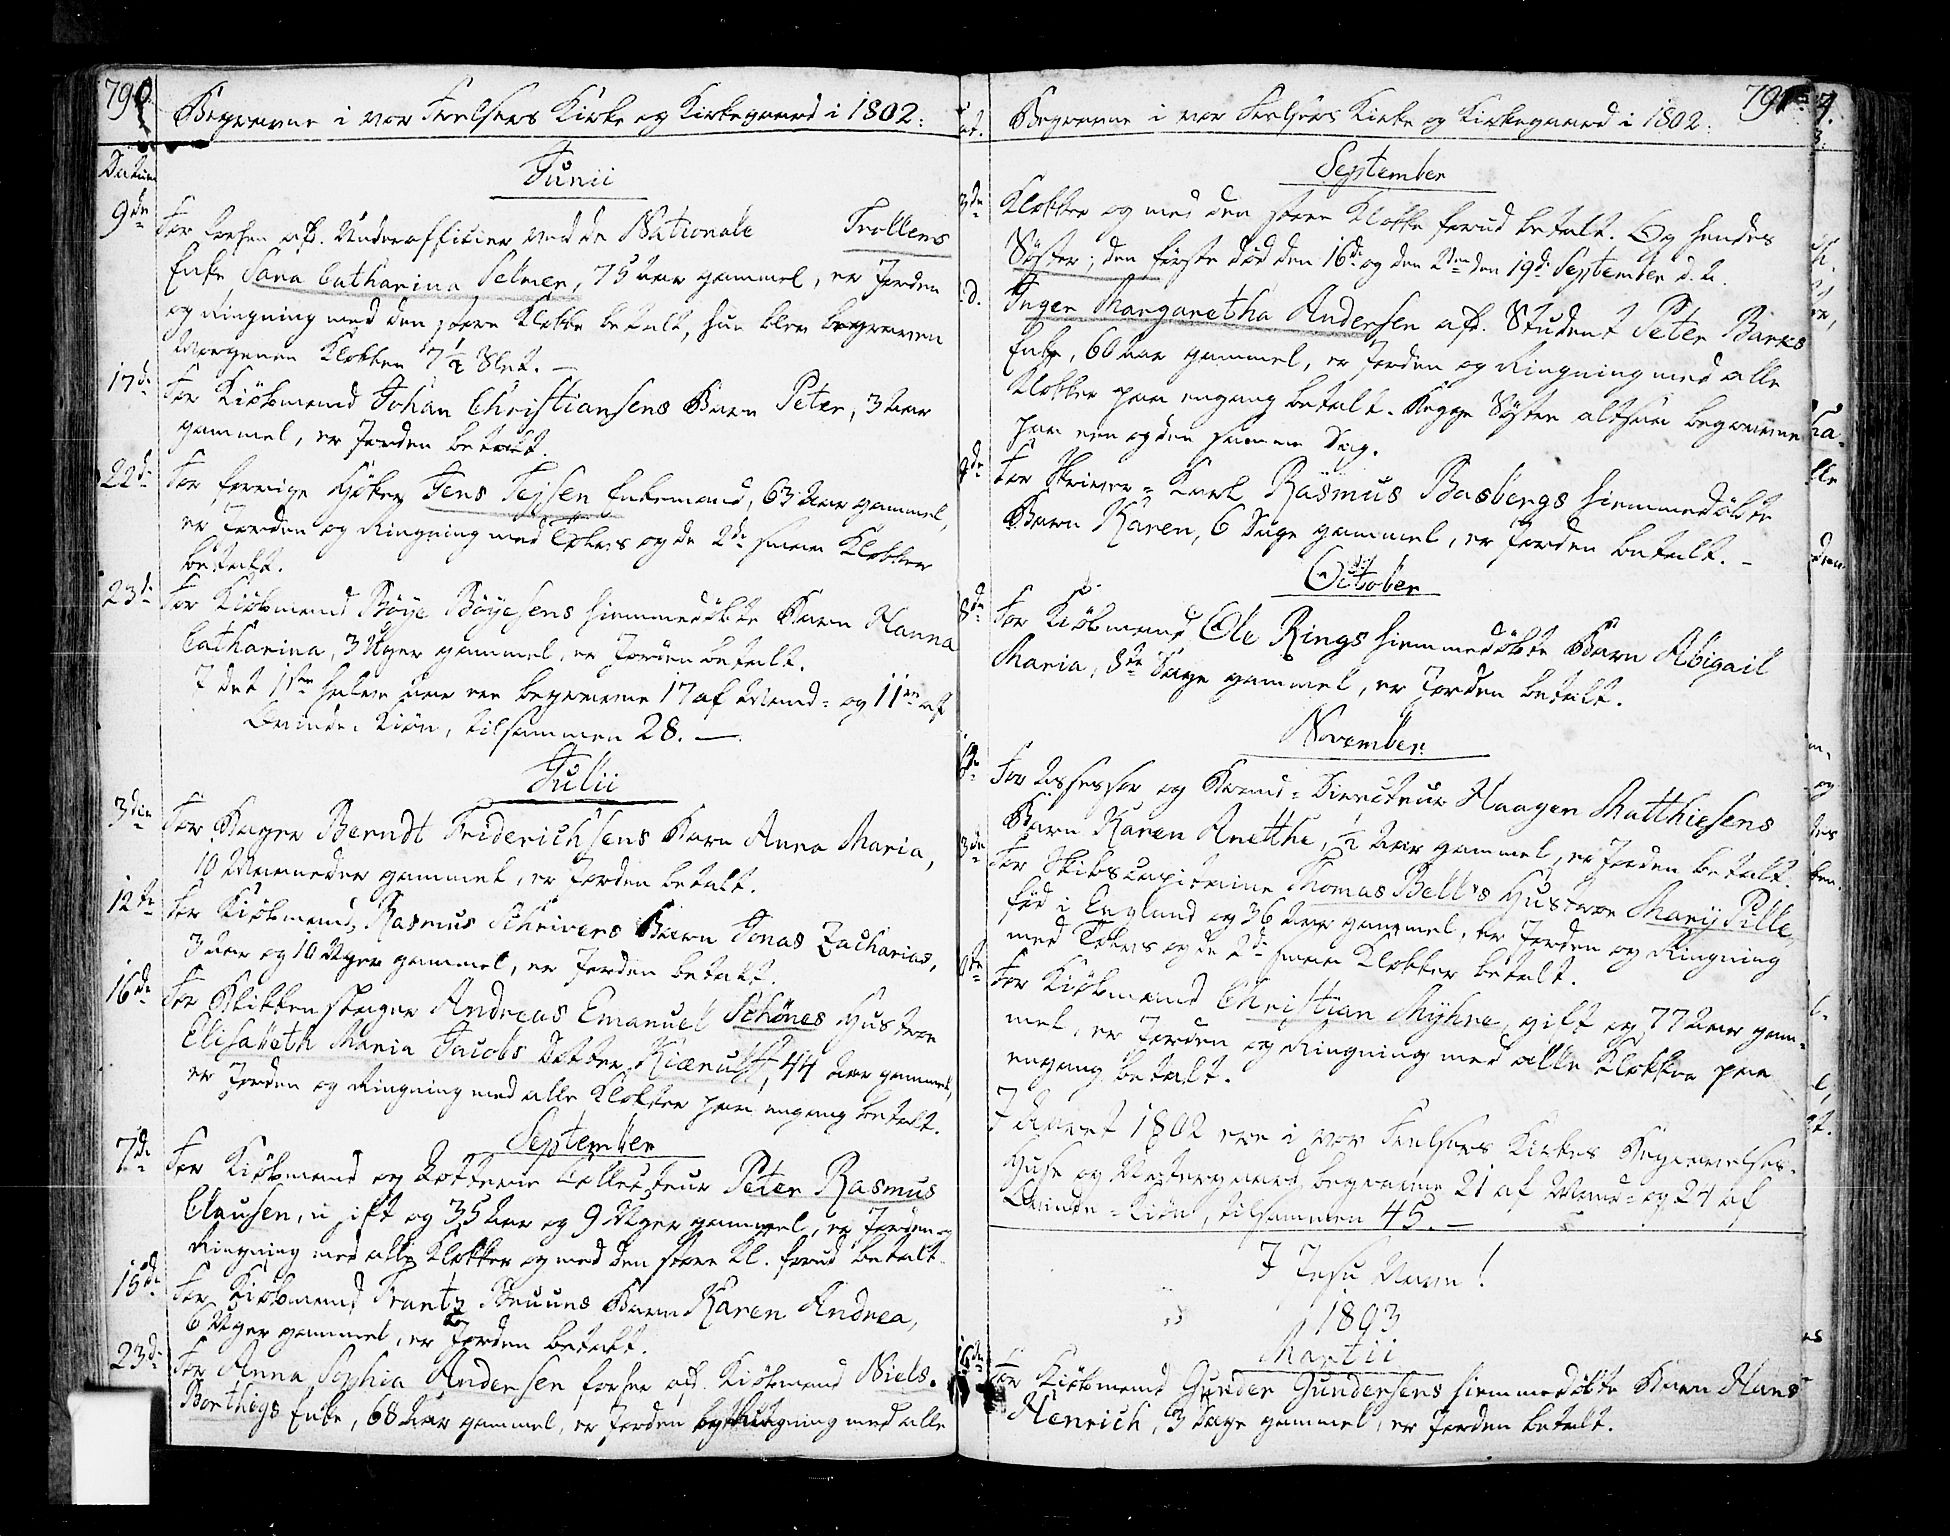 790
Begravne i vor Frelsers Kirke og Kirkegaard i 1802:
Datum
Junii
9de For forhen afd. Underofficier ved de Nationale Trollens
Enke Sara Catharina Selmer, 75 Aar gammel, er Jorden
og Ringning med den store Klokke betalt, hun blev begraven
Morgenen Klokken 7 1/2 Slet. —
17de For Kiöbmand Johan Christiansens Barn Peter, 3 Aar
gammel, er Jorden betalt.
22de For forrige Höker Jens Jejsen Enkemand, 63 Aar gammel,
er Jorden og Ringning med Tolvs og de 2de smaae Klokker
betalt.
23de For Kiöbmand Böye Böyesens hiemmedöbte Barn Hanna
Catharina, 3 Uger gammel, er Jorden betalt.
I det 1ste halve Aar ere begravne 17 af Mand- og 11 af
Qvinde-Kiön, tilsammen 28. —
Julii
3die For Bager Berndt Friderichsens Barn Anna Maria,
10 Maaneder gammel, er Jorden betalt.
12te For Kiöbmand Rasmus Schrivers Barn Jonas Zacharias,
3 Aar og 10 Uger gammel, er Jorden betalt.
16de For Blikkenslager Andreas Emanuel Schönes Hustroe
Elisabeth Maria Jacobs Datter Kiærulf, 44 Aar gammel,
er Jorden og Ringning med alle Klokker paa engang betalt.
September
7de For Kiöbmand og Lotterie Collecteur Peter Rasmus
Clausen, gift og 35 Aar og 9 Uger gammel, er Jorden og
Ringning med alle Klokker og med den store Kl. forud betalt.
15de For Kiöbmand Frantz Bruuns Barn Karen Andrea,
6 Uger gammel, er Jorden betalt.
23de For Anna Sophia Andersen forhen afd. Kiöbmand Niels
Borthigs Enke, 68 Aar gammel, er Jorden og Ringning med alle
791
Begravne i vor Frelsers Kirke og Kirkegaard i 1802:
September
Klokker og med den store Klokke forud betalt. Og hendes
Söster; den förste död den 16de og den 2den den 19de September d. A.
Inger Margaretha Andersen afd. Student Peter Barks
Enke, 60 Aar gammel, er Jorden og Ringning med alle
Klokker paa engang betalt. Begge Söstre altsaa begravne
paa een og den samme Dag.
For Skriver-Karl Rasmus Basbergs hiemmedöbte
Barn Karen, 6 Dage gammel, er Jorden betalt. —
October
8de For Kiöbmand Ole Rings hiemmedöbte Barn Abigail
Maria, 8te Dage gammel, er Jorden betalt.
November
For Assessor og Brand-Directeur Haagen Matthiesens
Barn Karen Anetthe, 1/2 Aar gammel, er Jorden betalt.
For Skibscapitaine Thomas Bell's Hustroe Mary Pille,
föd i England og 36 Aar gammel, er Jorden og Ringning
med Tolvs og de 2de smaae Klokker betalt.
For Kiöbmand Christian Myhre, gift og 77 Aar gam-
mel, er Jorden og Ringning med alle Klokker paa
engang betalt.
I Aaret 1802 ere i vor Frelsers Kirkes Begravelses-
Huse og Kirkegaard begravne 21 af Mand- og 24 af
Qvinde-Kiön, tilsammen 45. —
I Jesu Navn!
1803
Martii
For Kiöbmand Gunder Gundersens hiemmedöbte Barn Hans
Henrich, 3 Dage gammel, er Jorden betalt.